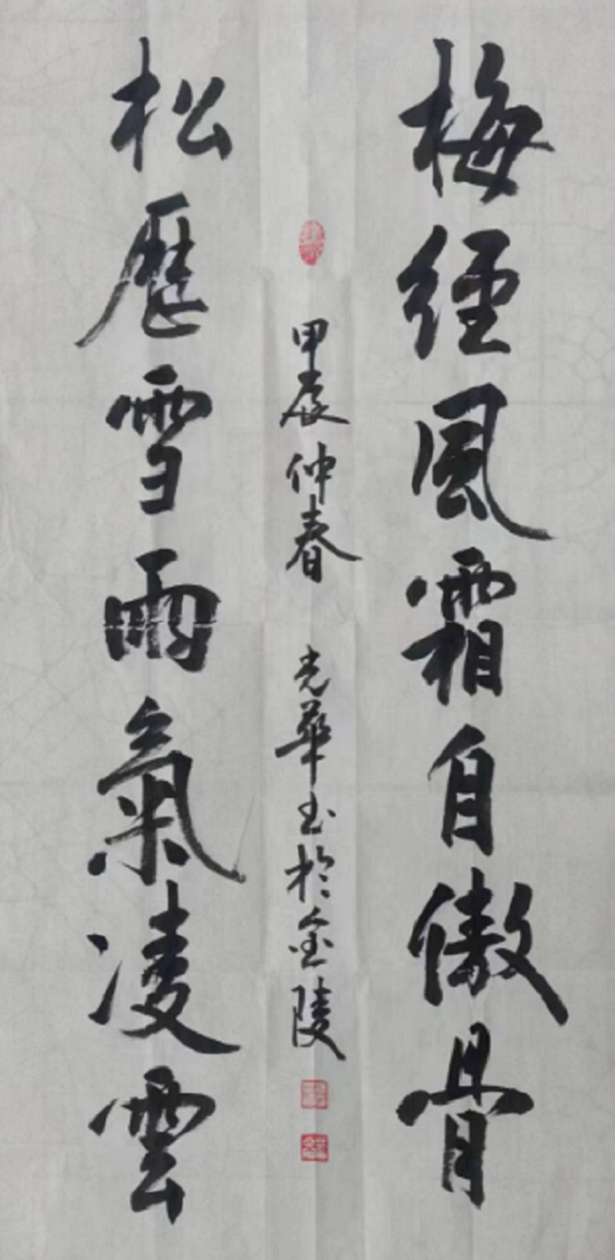 梅經風霜自傲骨
松歷雪雨氣凌雲
甲辰仲春 光華書於金陵